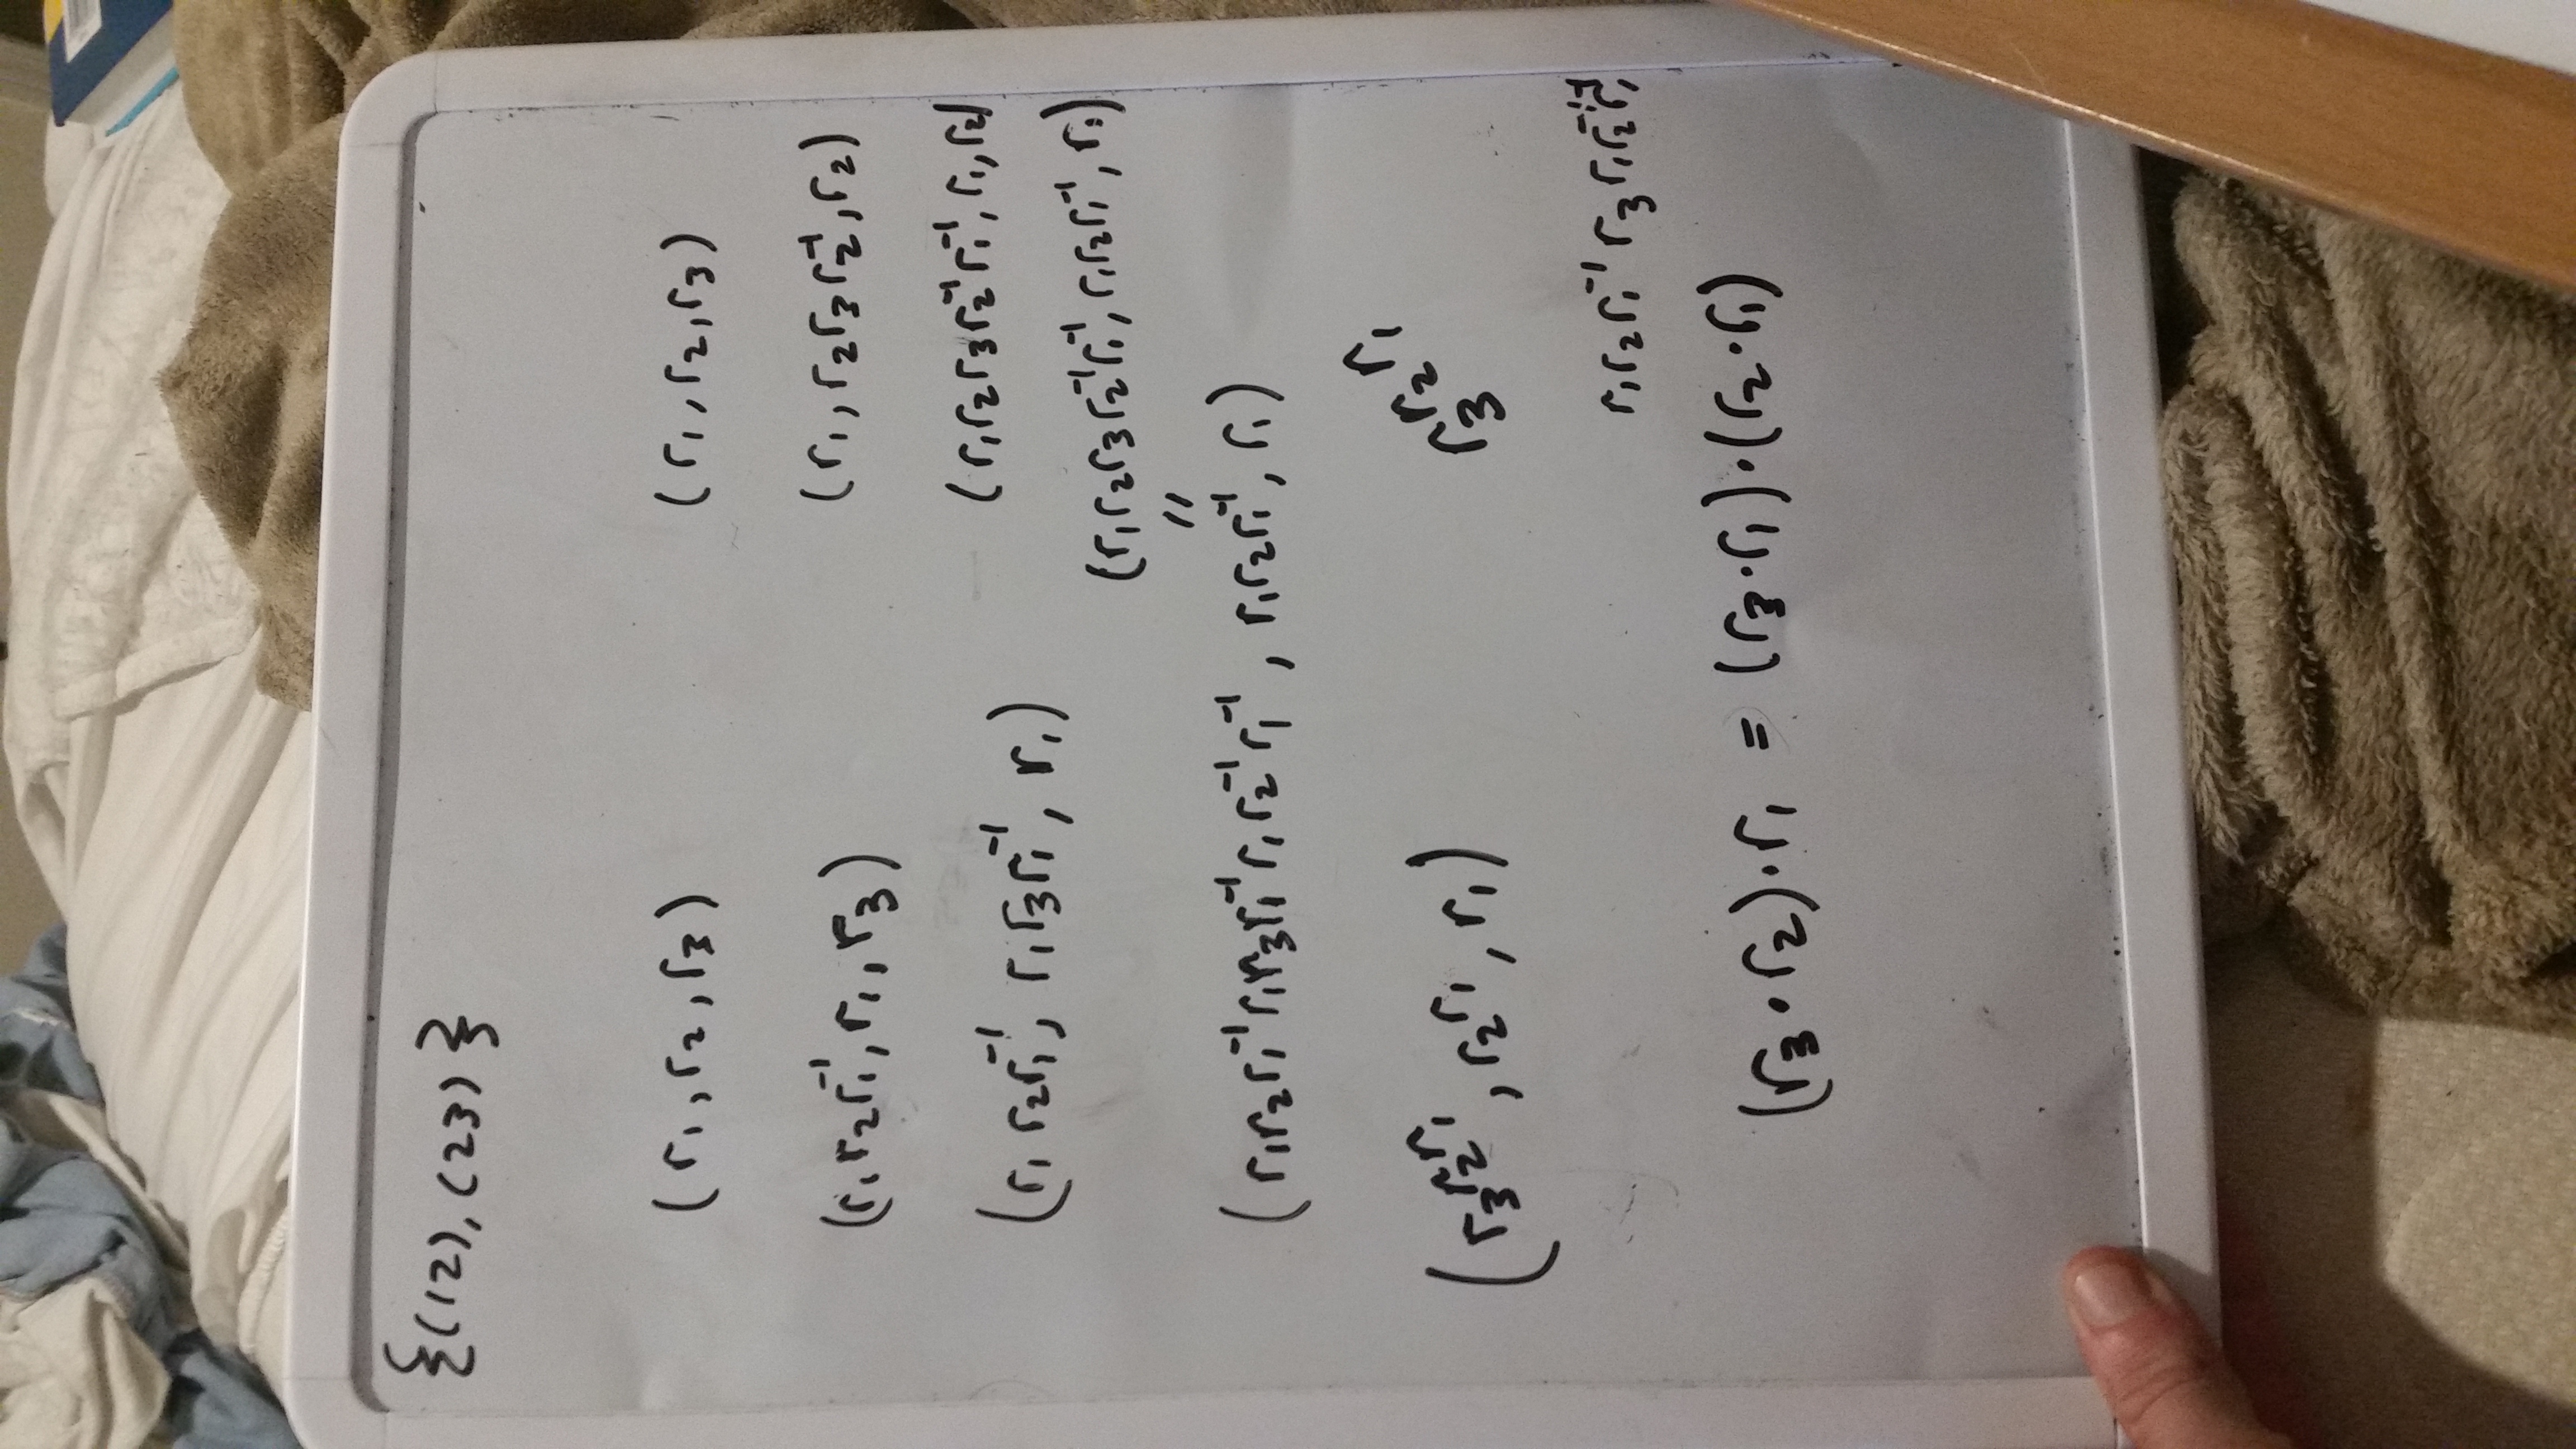 {(12), (23)}
(r₁, r₂, r₃) (r₁, r₂, r₃)
(r₁r₂r₁⁻¹, r₁, r₃) (r₁, r₂r₃r₂⁻¹, r₂)
(r₁r₂r₃r₂⁻¹r₁⁻¹, r₁, r₂)
(r₁r₂r₁⁻¹, r₁r₃r₁⁻¹, r₁)
(r₁r₂r₃r₂⁻¹r₁⁻¹, r₁r₂r₁⁻¹, r₁)
=
(r₁r₂r₁⁻¹r₁r₃r₁⁻¹r₁r₂⁻¹r₁⁻¹, r₁r₂r₁⁻¹, r₁)
(r₃^r₂^r₁, r₂^r₁, r₁) r₃^r₂^r₁
r₁r₂r₁⁻¹r₃r₁r₂⁻¹r₁⁻¹
(r₃·r₂)·r₁ = (r₃·r₁)·(r₂·r₁)